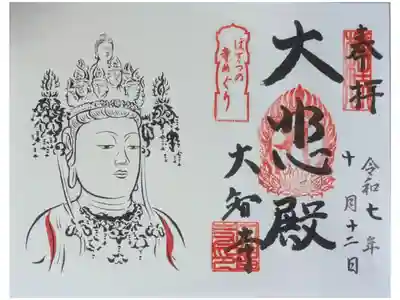 奉拝
令和七年
十月十二日
大悲殿
大智寺
ぼさつの
寺めぐり